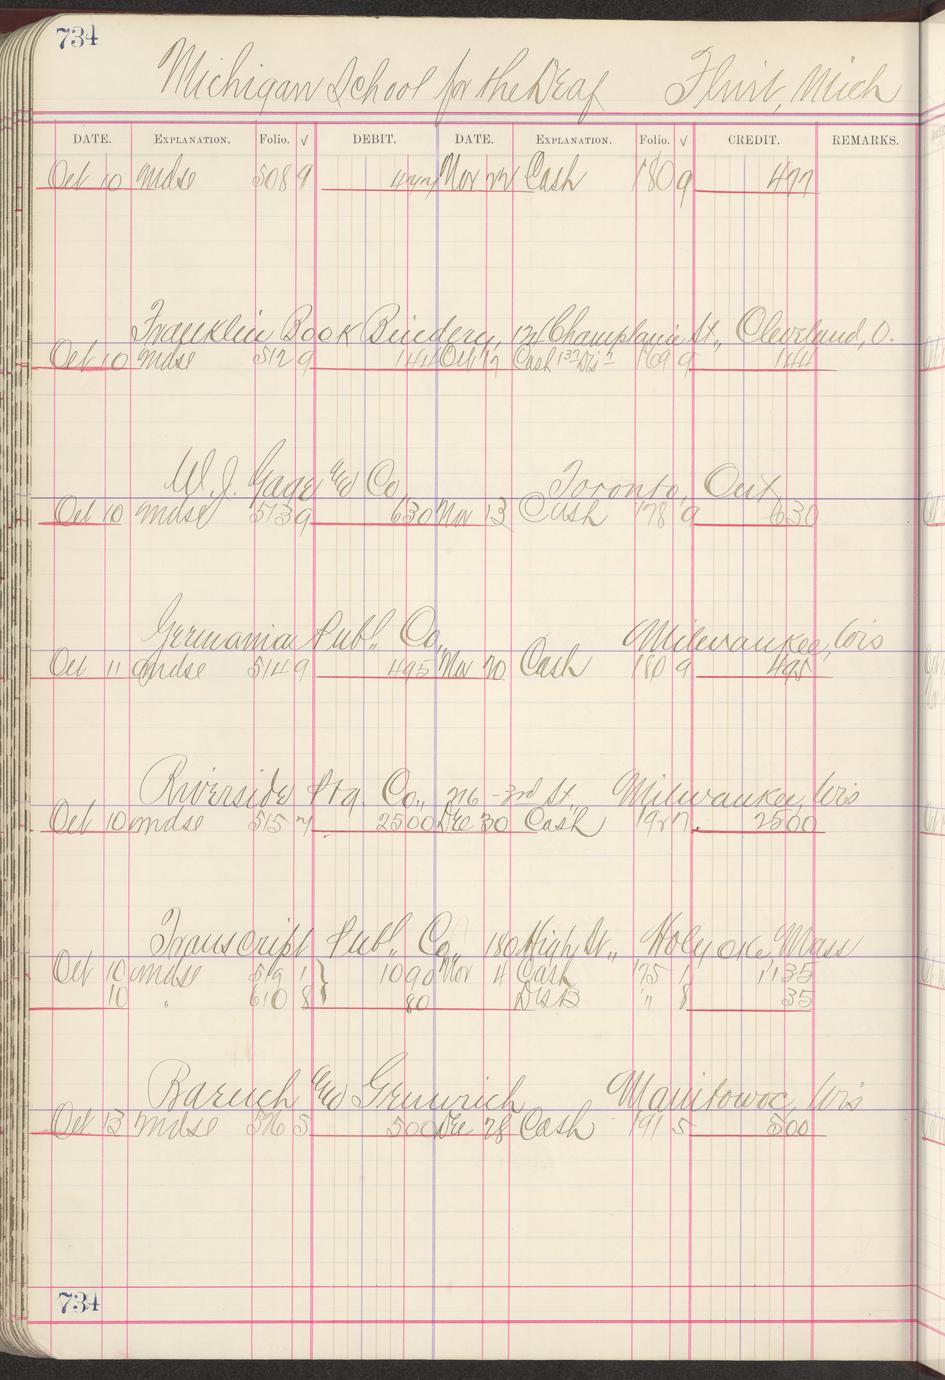 734
Michigan School for the Deaf Flint, Mich
DATE. EXPLANATION. Folio. √ DEBIT. DATE. EXPLANATION. Folio. √ CREDIT. REMARKS.
Oct 10 Mdse 508 9 477 Nov 22 Cash 180 9 477
Franklin Book Bindery, Champlain St., Cleveland, O.
Oct 10 Mdse 512 9 144 Oct 17 Cash 169 9 144
W. J. Gage & Co Toronto, Ont
Oct 10 Mdse 513 9 630 Nov 13 Cash 178 9 630
Germania Publ. Co., Milwaukee, Wis
Oct 11 Mdse 514 9 495 Nov 20 Cash 180 9 495
Riverside Ptg. Co., 216 - 3rd St., Milwaukee, Wis
Oct 10 Mdse 515 7 2500 Dec 30 Cash 192 7 2500
Transcript Publ. Co., 180 High St., Holyoke, Mass
Oct 10 Mdse 519 1 } 1090 Nov 4 Cash 175 1 1135
10 " 610 8 80 Dis B " 8 35
Baruch & Greenrich Manitowoc, Wis
Oct 13 Mdse 526 5 500 Dec 28 Cash 191 5 500
734